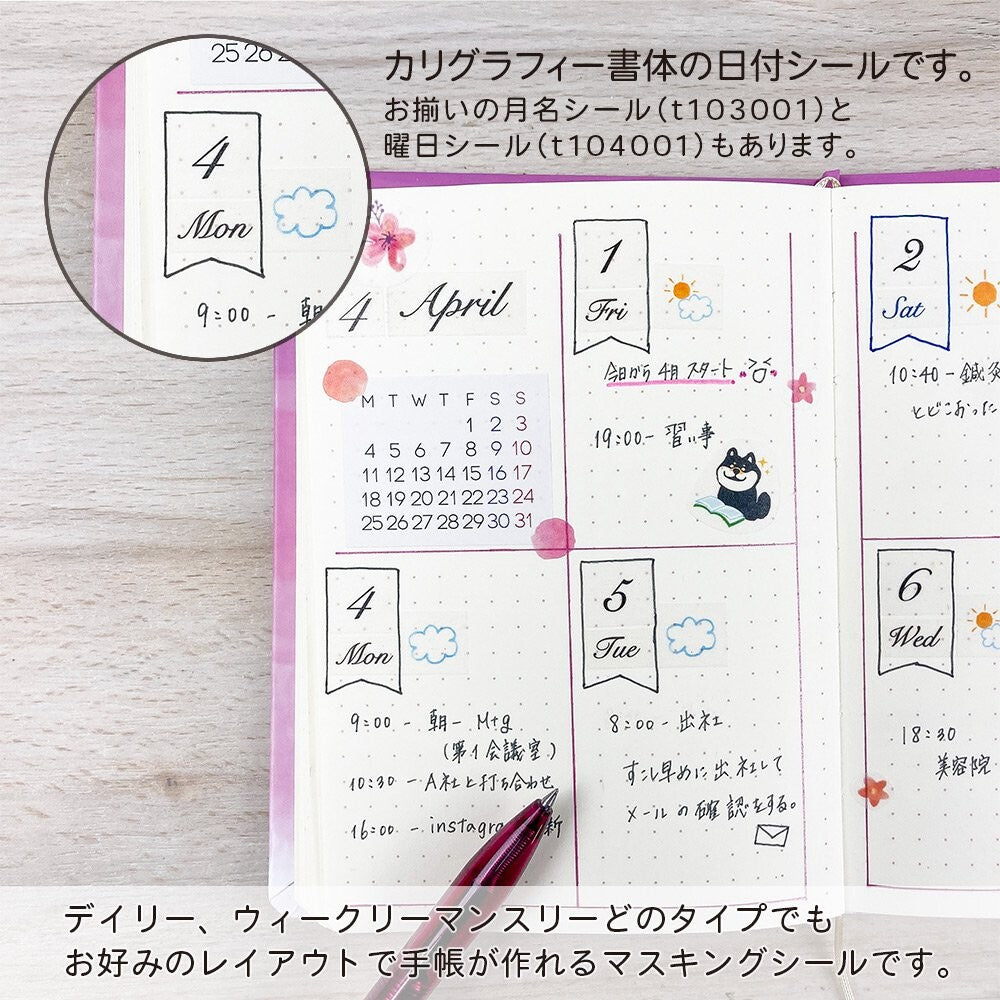 カリグラフィー書体の日付シールです。
お揃いの月名シール(t103001)と
曜日シール(t104001)もあります。
25 26
4
Mon
9:00 - 朝
4 April
M T W T F S S
1 2 3
4 5 6 7 8 9 10
11 12 13 14 15 16 17
18 19 20 21 22 23 24
25 26 27 28 29 30 31
1
Fri
今日から 4月 スタート
19:00- 習い事
2
Sat
10:40-鍼灸
とどこおった
4
Mon
9:00 - 朝一 Mtg
(第1会議室)
10:30 - A社と打ち合わせ
16:00 - instagra 新
5
Tue
8:00- 出社
すこし早めに出社して
メールの確認をする。
6
Wed
18:30
美容院
デイリー、ウィークリーマンスリーどのタイプでも
お好みのレイアウトで手帳が作れるマスキングシールです。